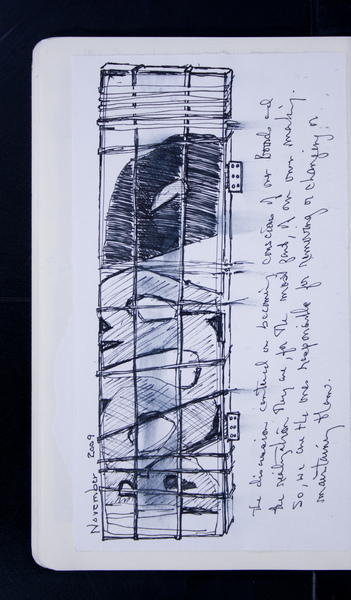 November 2009
The discussion centered on becoming conscious of our bonds and
the realization they are for the most part, of our own making.
So, we are the ones responsible for removing or changing or
maintaining them.